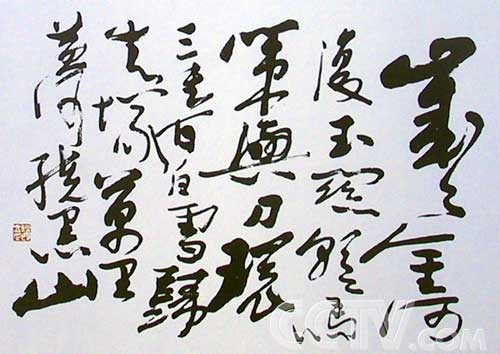 歲々金河
復玉關朝々馬
策與刀環
三春白雪歸
青塚萬里
黄河繞黑山
CCTV.com